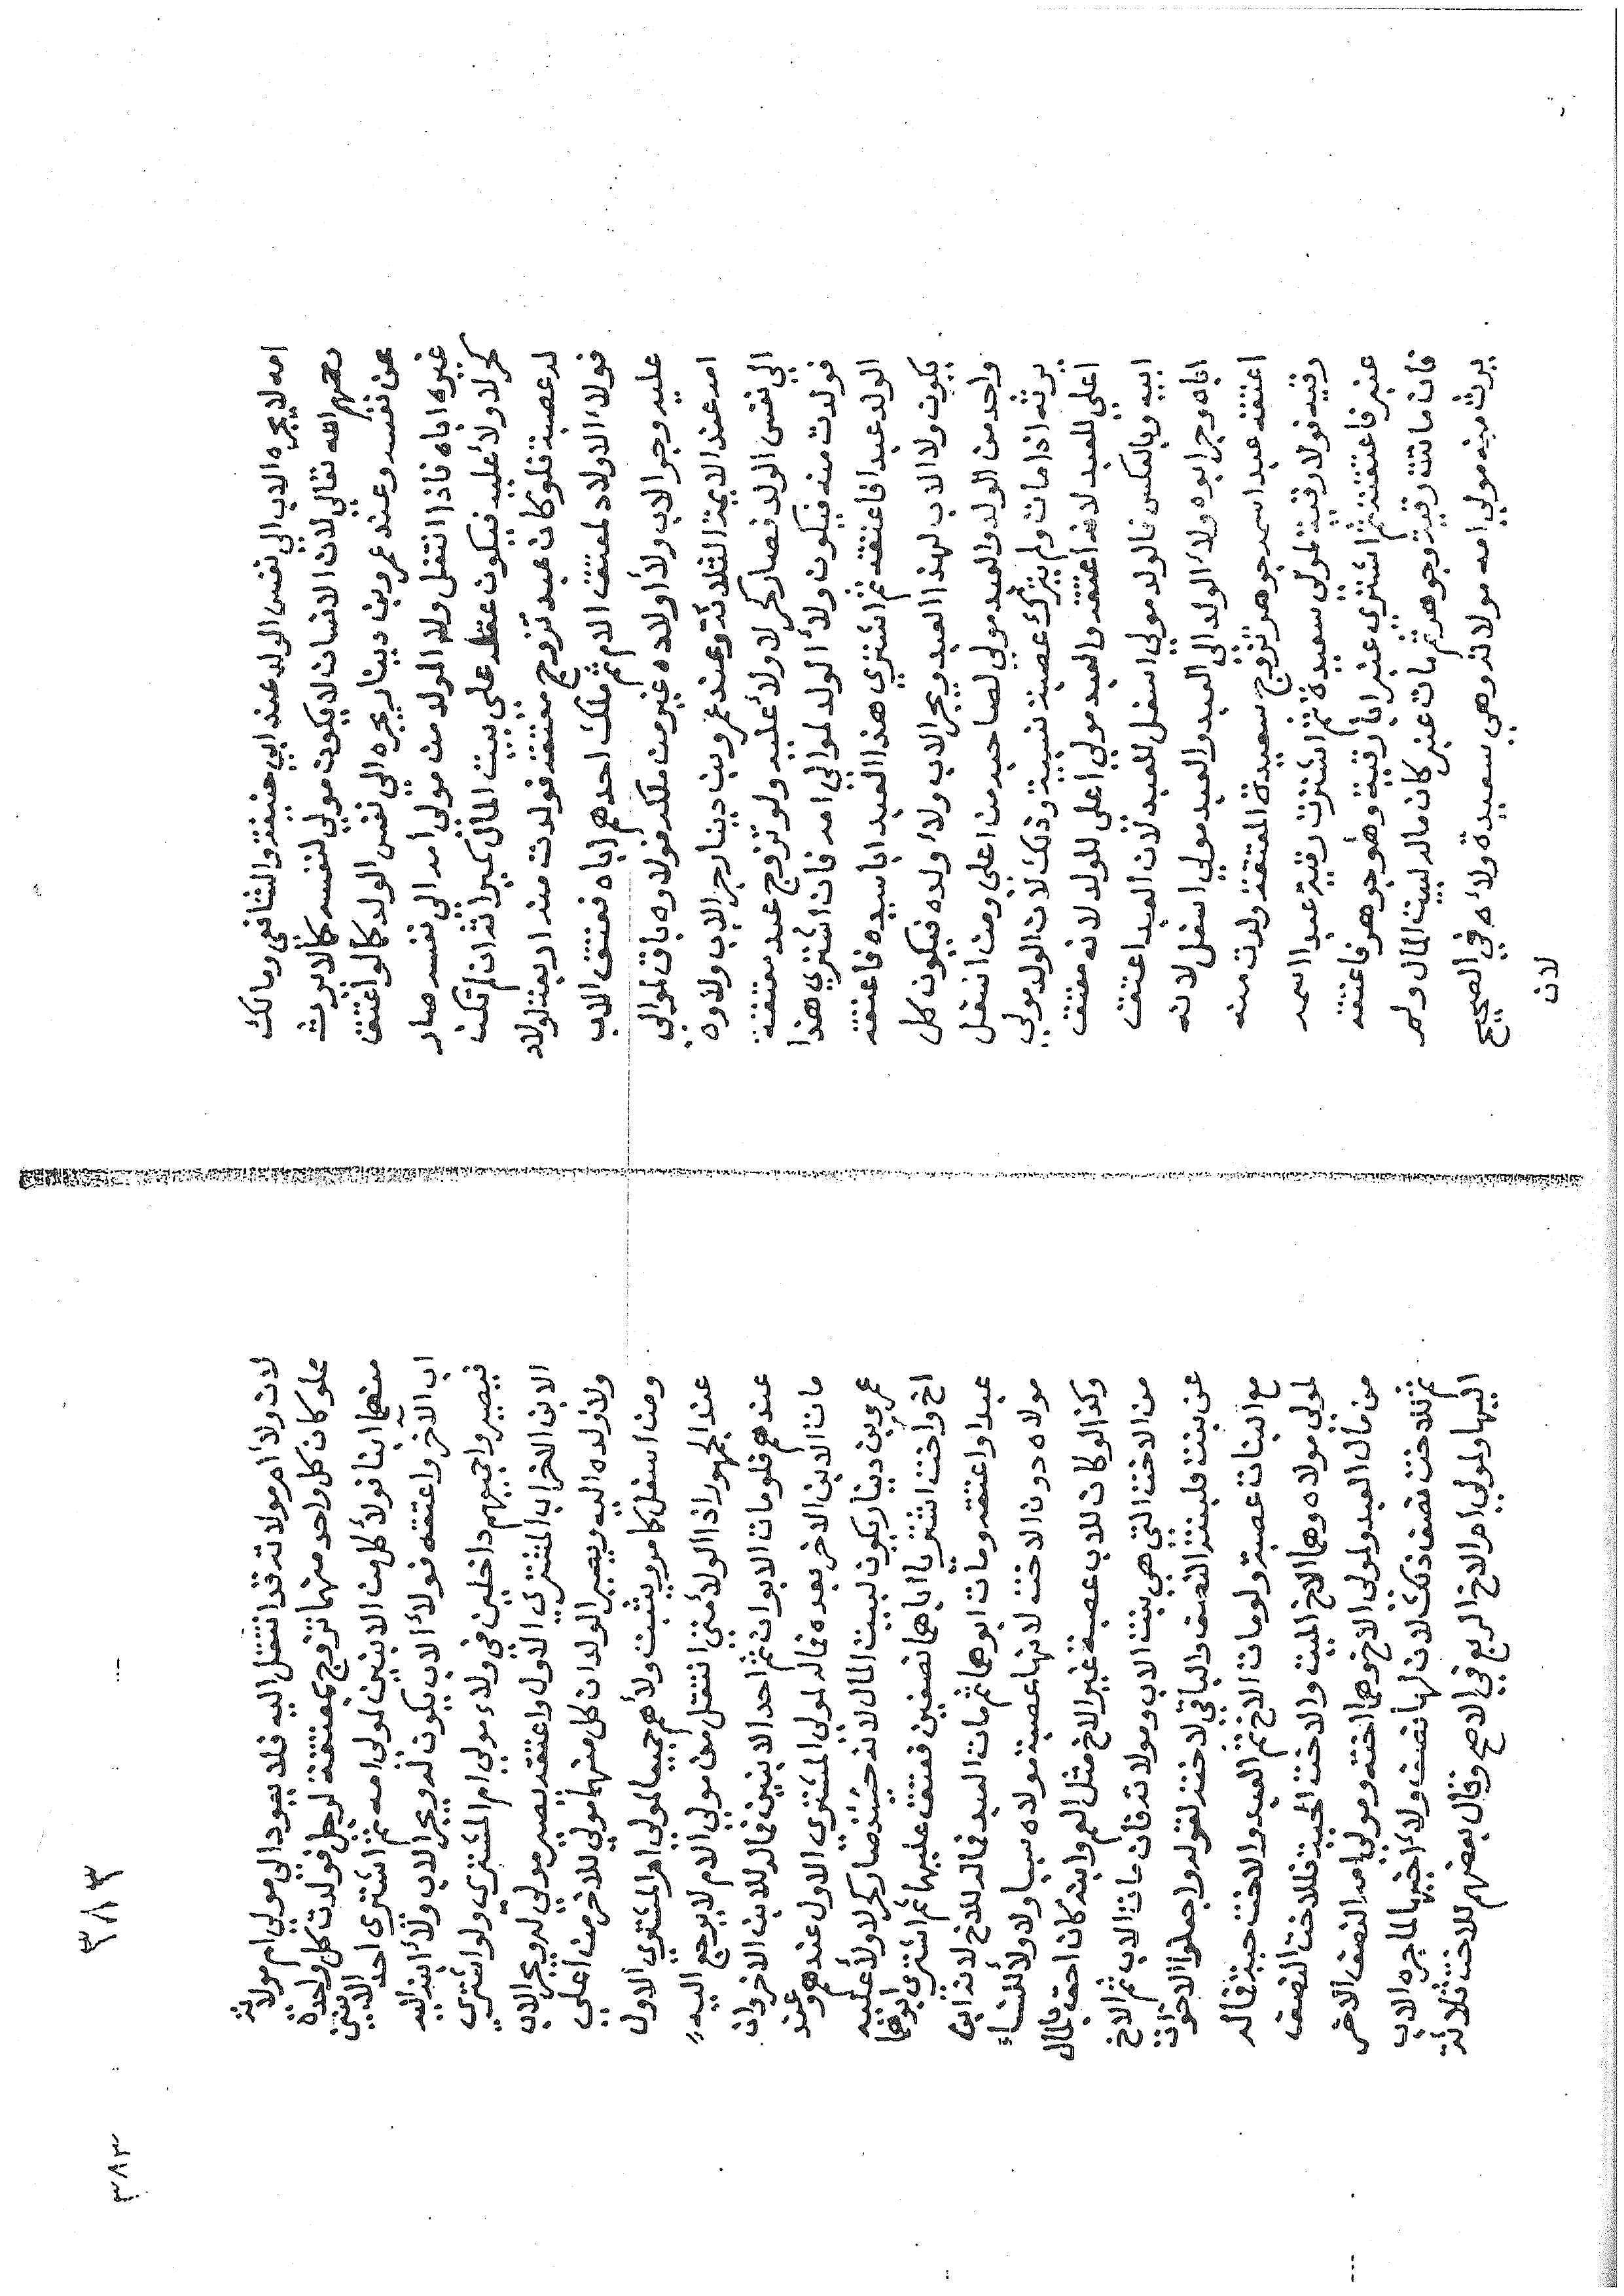 امه لا يجره الاب الي نفس الولد عند ابي حنيفة والشافعي ومالك
رحمهم الله تعالي لان الانسان لا يكون مولي لنفسه كما لا يرث
عن نفسه وعند عمرو بن دينار يجره الي نفس الولد كما لو اعتق
غيره اباه فاذا انتقل ولاء الولد من مولي امه الي نفسه صار
كحر لا ولاء عليه فيكون عقله علي بيت المال كميراثه ان لم تكن
له عصبة فلو كان عبد تزوج معتقة فولدت منه اربعة اولاد
فولاء الاولاد لمعتق الام ثم ملك احدهم اباه فعتق الاب
عليه وجر الاب ولاء اولاده غير من ملكه فولاوه باق لموالي
امه عند الايمة الثلاثة وعند عمرو بن دينار جر الاب ولاوه
الي نفس الولد فصار كحر لا ولاء عليه ولو تزوج عبد معتقة
فولدت منه فيكون ولاء الولد لموالي امه فان اشتري هذا
الولد عبدا فاعتقه ثم اشتري هذا العبد ابا سيده فاعتقه
يكون ولا الاب لهذا العبد ويجر الاب ولاء ولده فيكون كل
واحد من الولد والعبد مولي لصاحبه من اعلي ومن اسفل
يرثه اذا مات ولم يترك عصبة نسبية وذلك لان الولد مولي
اعلي للعبد لانه اعتقه والعبد مولي اعلي للولد لانه معتق
ابيه وبالعكس فالولد مولي اسفل للعبد لان العبد اعتق
اباه وجر ابوه ولاء الولد الي العبد والعبد مولي اسفل لانه
اعتقه عبد اسمه جوهر تزوج سعيدة المعتقة ولدت منه
رقية فولا رقية لمولي سعيدة ثم اشترت رقية عبدا اسمه
عنبر فاعتقته ثم اشتري عنبر ابا رقية وهو جوهر فاعتقه
فان ماتت رقية وجوهر ثم مات عنبر كان ماله لبيت المال ولم
يرث منه مولي امه مولاته وهي سعيدة ولاه في الصحيح
لان
٣٨٣
لان ولاء ام مولاته قد انتقل اليه فلا يعود الي مولي ام مولاته
ملو كان كل واحد منهما تزوج بمعتقة لرجل فولدت كل واحدة
منهما ابنا فولاء كل من الابنين لمولي امه ثم اشتري احد الابنين
اب الاخر واعتقه فولاء الاب يكون له ويجر الاب ولاء ابنه اليه
فيصيروا جميعهم داخلين في ولاء مولي ام المشتري ولو اشتري
الابن الاخر اب المشتري الاول واعتقه يصير مولي له ويجر الاب
ولاء ولده اليه ويصير الولدان كل منهما مولي للاخر من اعلي
ومن اسفل كما مر ويثبت ولاءهم جميعا لمولي ام المشتري الاول
عند الجمهور اذا الولاء متي انتقل من مولي الام لا يرجع اليه
عندهم فلو مات الابوان ثم احد الابنين فماله للابن الاخر فان
مات الابن الاخر بعده فماله لمولي المشتري الاول عندهم وعند
عمرو بن دينار يكون لبيت المال لانه حينئذ صار كحر لا ولاء عليه
اخ واخت اشتريا اباهما نصفين فعتق عليهما ثم اشتري ابوهما
عبدا واعتقه ومات ابوهما ثم مات العبد فماله للاخ لانه ابن
مولاه دون الاخت لانها عصبة مولاه سببا ولا ولاء للنساء
وكذا لو كان للاب عصبة غير الاخ مثل العم وابنه كان احق بالمال
من الاخت التي هي بنت الاب ومولاته فان مات الاب ثم الاخ
عن بنت فلبنته النصف والباقي لاخته لقوله واجعلوا الاخوات
مع البنات عصبة ولو مات الاخ ثم العبد والاخت حية فماله
لمولي مولاه وهما الاخ الميت والاخت الحية فللاخت النصف
من مال العبد ولمولي الاخ وهما اخته ومولي امه النصف الاخر
ثم ثلاخت نصف ذلك لان لها نصف ولاء اخيها لما جره الاب
اليها ولمولي ام الاخ الربع في الاصح وقال بعضهم للاخت ثلاثة
٣٨٣